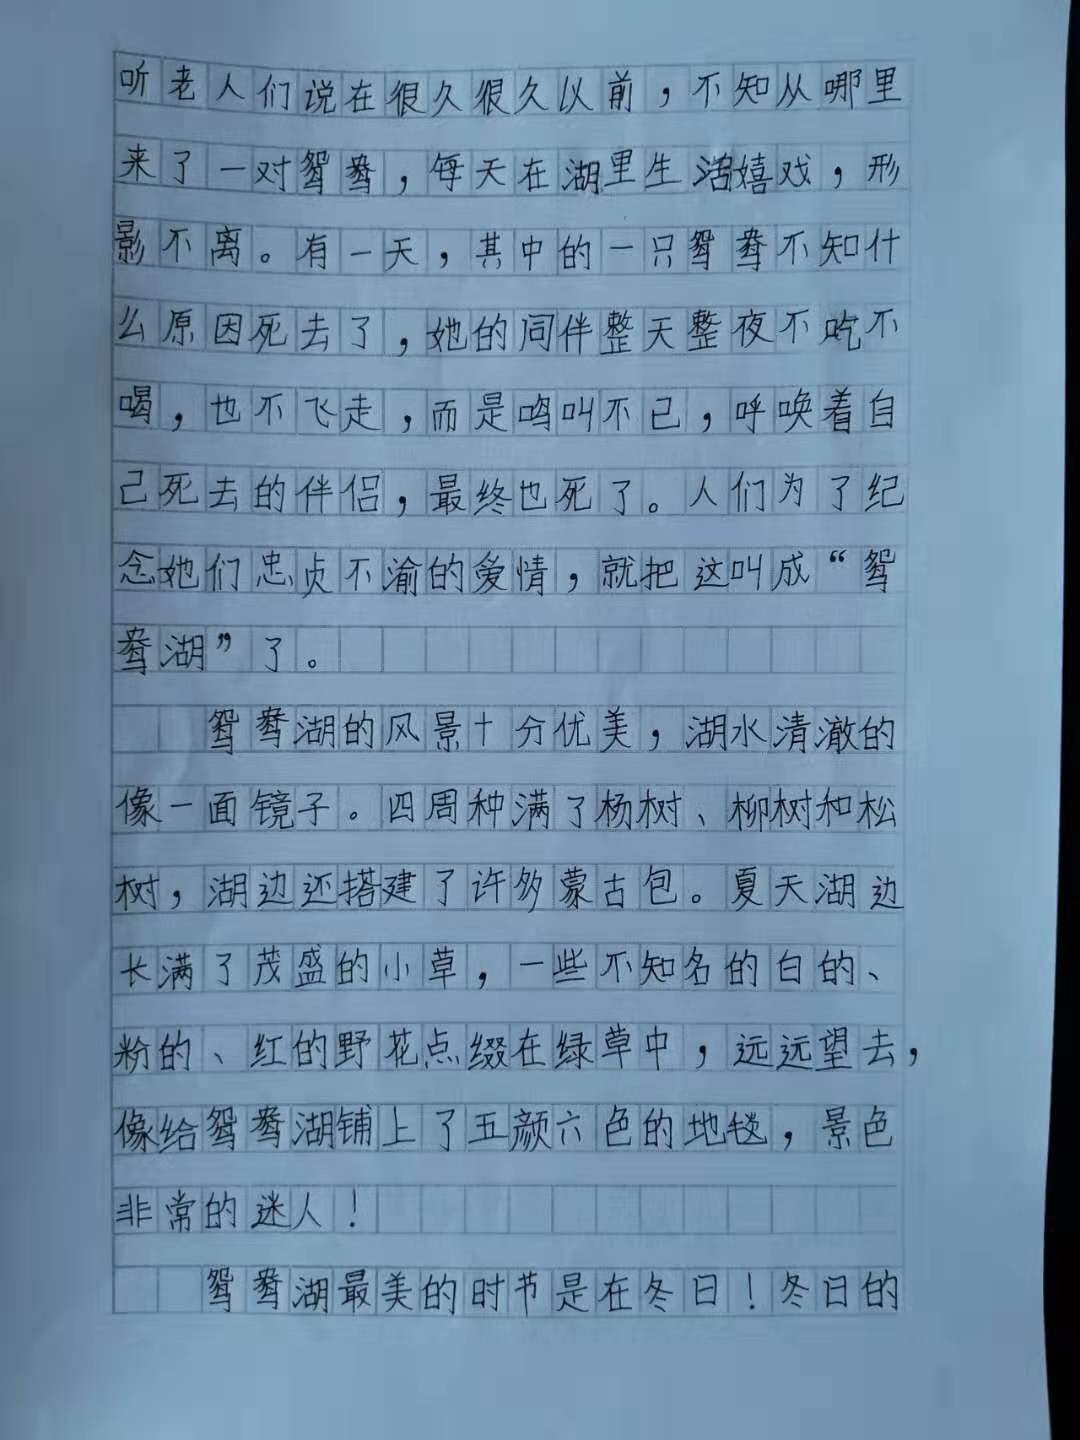 听老人们说在很久很久以前，不知从哪里
来了一对鸳鸯，每天在湖里生活嬉戏，形
影不离。有一天，其中的一只鸳鸯不知什
么原因死去了，她的同伴整天整夜不吃不
喝，也不飞走，而是鸣叫不已，呼唤着自
己死去的伴侣，最终也死了。人们为了纪
念她们忠贞不渝的爱情，就把这叫成“鸳
鸯湖”了。
鸳鸯湖的风景十分优美，湖水清澈的
像一面镜子。四周种满了杨树、柳树和松
树，湖边还搭建了许多蒙古包。夏天湖边
长满了茂盛的小草，一些不知名的白的、
粉的、红的野花点缀在绿草中，远远望去，
像给鸳鸯湖铺上了五颜六色的地毯，景色
非常的迷人！
鸳鸯湖最美的时节是在冬日！冬日的